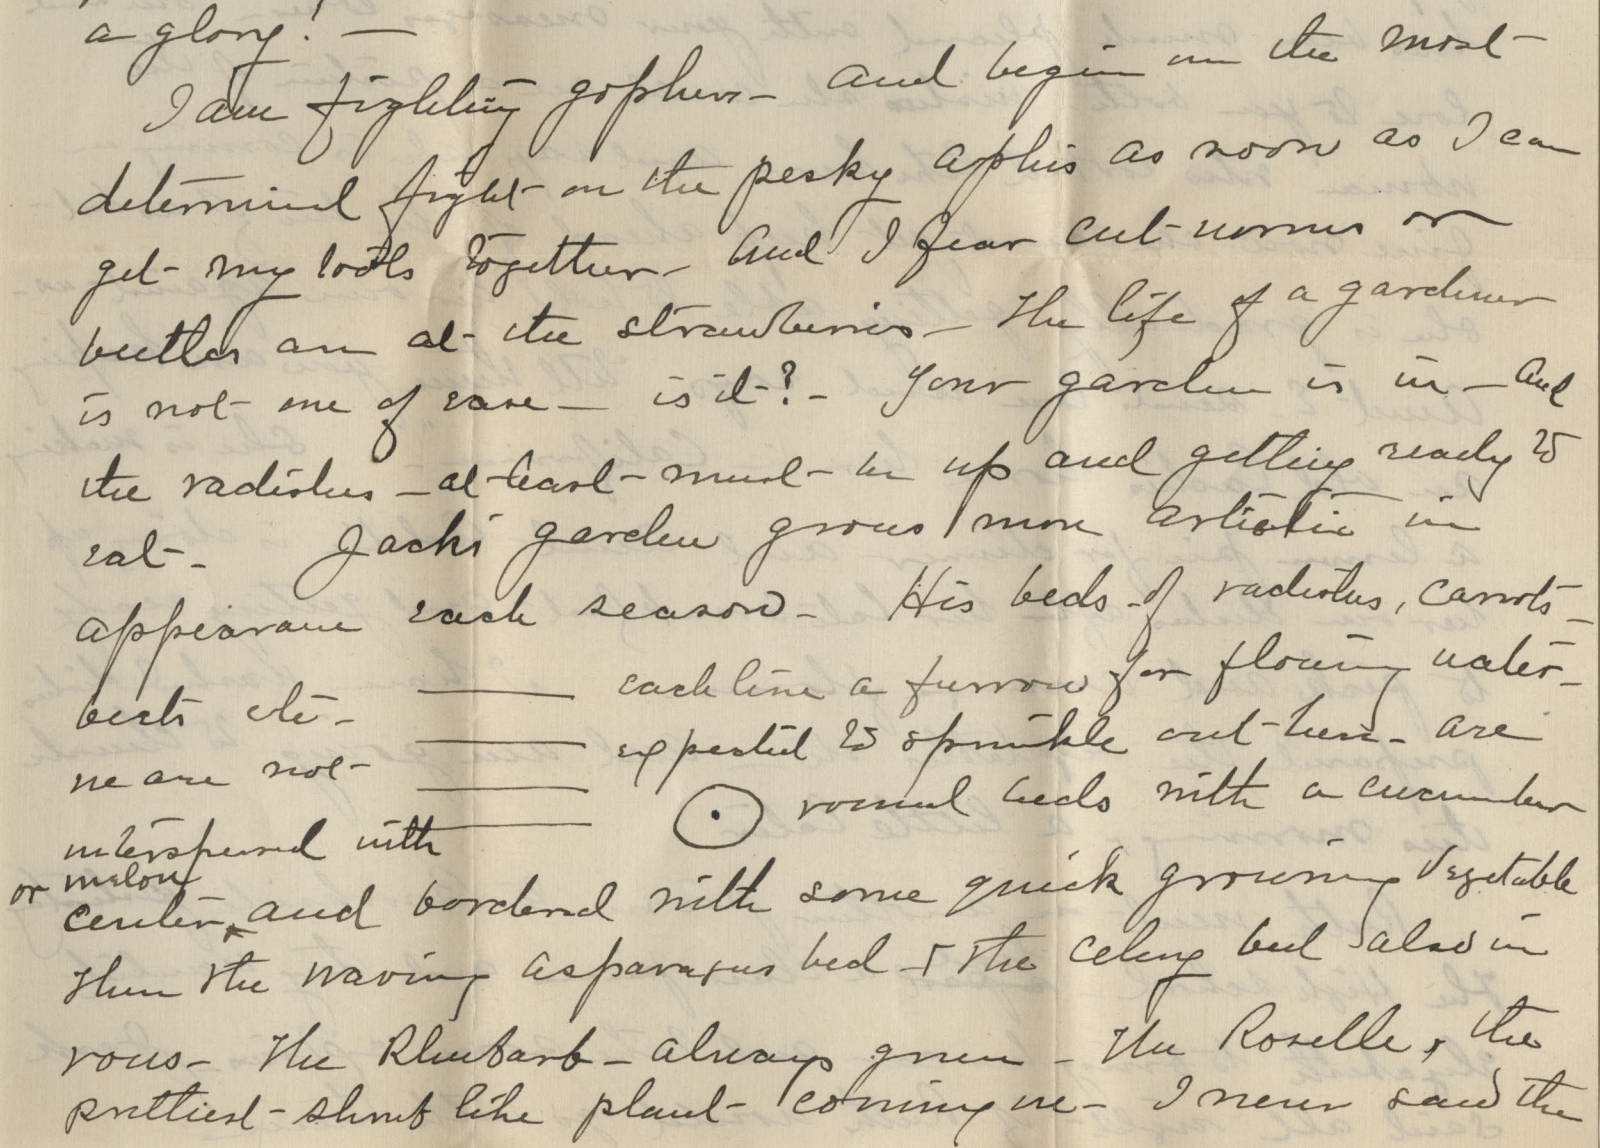 a glory! —
I am fighting gophers — and begin on the most
determined fight on the pesky aphis as soon as I can
get my tools together — And I fear cut-worms or
beetles are at the strawberries — The life of a gardener
is not one of ease — is it? — Your garden is in — And
the radishes — at least — must be up and getting ready to
eat — Jack's garden grows more artistic in
appearance each season — His beds of radishes, carrots —
beets etc — each line a furrow for flowing water —
we are not expected to sprinkle out here — are
interspersed with round beds with a cucumber
or melon
center, and bordered with some quick growing vegetable
Then the waving asparagus bed & the celery bed also in
rows — The Rhubarb — always green — The Roselle, the
prettiest shrub like plant — coming in — I never saw the